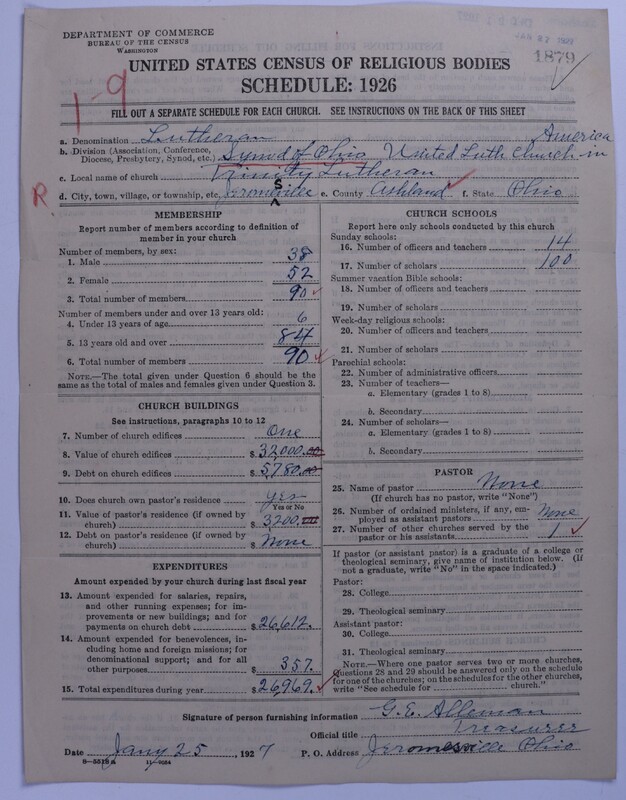 DEPARTMENT OF COMMERCE
BUREAU OF THE CENSUS
WASHINGTON
JAN 27 1927
1879
UNITED STATES CENSUS OF RELIGIOUS BODIES
SCHEDULE: 1926
1-9
FILL OUT A SEPARATE SCHEDULE FOR EACH CHURCH. SEE INSTRUCTIONS ON THE BACK OF THIS SHEET
a. Denomination Lutheran
b. Division (Association, Conference, Diocese, Presbytery, Synod, etc.) Synod of Ohio United Luth Church in America
c. Local name of church Trinity Lutheran
R
d. City, town, village, or township, etc. Jeromesville e. County Ashland f. State Ohio
MEMBERSHIP
Report number of members according to definition of
member in your church
Number of members, by sex:
1. Male 38
2. Female 52
3. Total number of members 90
Number of members under and over 13 years old:
4. Under 13 years of age 6
5. 13 years old and over 84
6. Total number of members 90
NOTE.—The total given under Question 6 should be
same as the total of males and females given under Question 3.
CHURCH BUILDINGS
See instructions, paragraphs 10 to 12
7. Number of church edifices One
8. Value of church edifices $ 32,000.00
9. Debt on church edifices $ 5,780.00
10. Does church own pastor's residence yes
Yes or No
11. Value of pastor's residence (if owned by
church) $ 3200.00
12. Debt on pastor's residence (if owned by
church) $ None
EXPENDITURES
Amount expended by your church during last fiscal year
13. Amount expended for salaries, repairs,
and other running expenses; for im-
provements or new buildings; and for
payments on church debt $ 26,612.
14. Amount expended for benevolences,
including home and foreign missions; for
denominational support; and for all
other purposes $ 357.
15. Total expenditures during year $ 26,969.
CHURCH SCHOOLS
Report here only schools conducted by this church
Sunday schools:
16. Number of officers and teachers 14
17. Number of scholars 100
Summer vacation Bible schools:
18. Number of officers and teachers
19. Number of scholars
Week-day religious schools:
20. Number of officers and teachers
21. Number of scholars
Parochial schools:
22. Number of administrative officers
23. Number of teachers—
a. Elementary (grades 1 to 8)
b. Secondary
24. Number of scholars—
a. Elementary (grades 1 to 8)
b. Secondary
PASTOR
25. Name of pastor None
(If church has no pastor, write "None")
26. Number of ordained ministers, if any, em-
ployed as assistant pastors None
27. Number of other churches served by the
pastor or his assistants 1
If pastor (or assistant pastor) is a graduate of a college or
theological seminary, give name of institution below. (If
not a graduate, write "No" in the space indicated.)
Pastor:
28. College
29. Theological seminary
Assistant pastor:
30. College
31. Theological seminary
NOTE.—Where one pastor serves two or more churches,
Questions 28 and 29 should be answered only on the schedule
for one of the churches; on the schedules for the other churches,
write "See schedule for church."
Signature of person furnishing information G. E. Alleman
Official title Treasurer
Date Jany 25, 1927 P. O. Address Jeromesville Ohio
8—5519a 11—9064